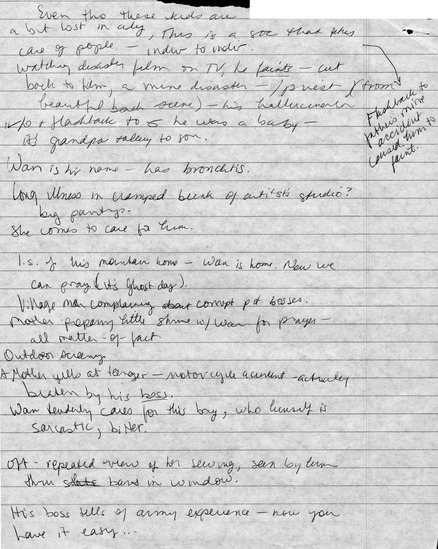 Even tho these kids are
a bit lost in city, This is a soc that takes
care of people – indiv to indiv.
watching disaster film on TV, he faints – cut
back to film, a mine disaster – priest (from
beautiful beach scene) – his hallucination
w/ flashback to he was a baby –
As grandpa talking to son.
Wan is his name – has bronchitis.
Long illness in cramped bunk of artists studio?
big paintings.
She comes to care for him.
Flashback to
father's mine
accident
caused him to
faint.
l.s. of his mountain home – Wan is home. Now we
can pray (it's Ghost day).
Village men complaining about corrupt pit bosses.
Mother preparing little shrine w/ Wan for prayer –
all matter-of-fact
Outdoor screening
A Mother yells at teenager – motorcycle accident – actually
beaten by his boss.
Wan tenderly cares for this boy, who himself is
sarcastic, bitter.
Oft-repeated view of her sewing, seen by him
thru slats bars in window.
His boss tells of army experience – now you
have it easy...